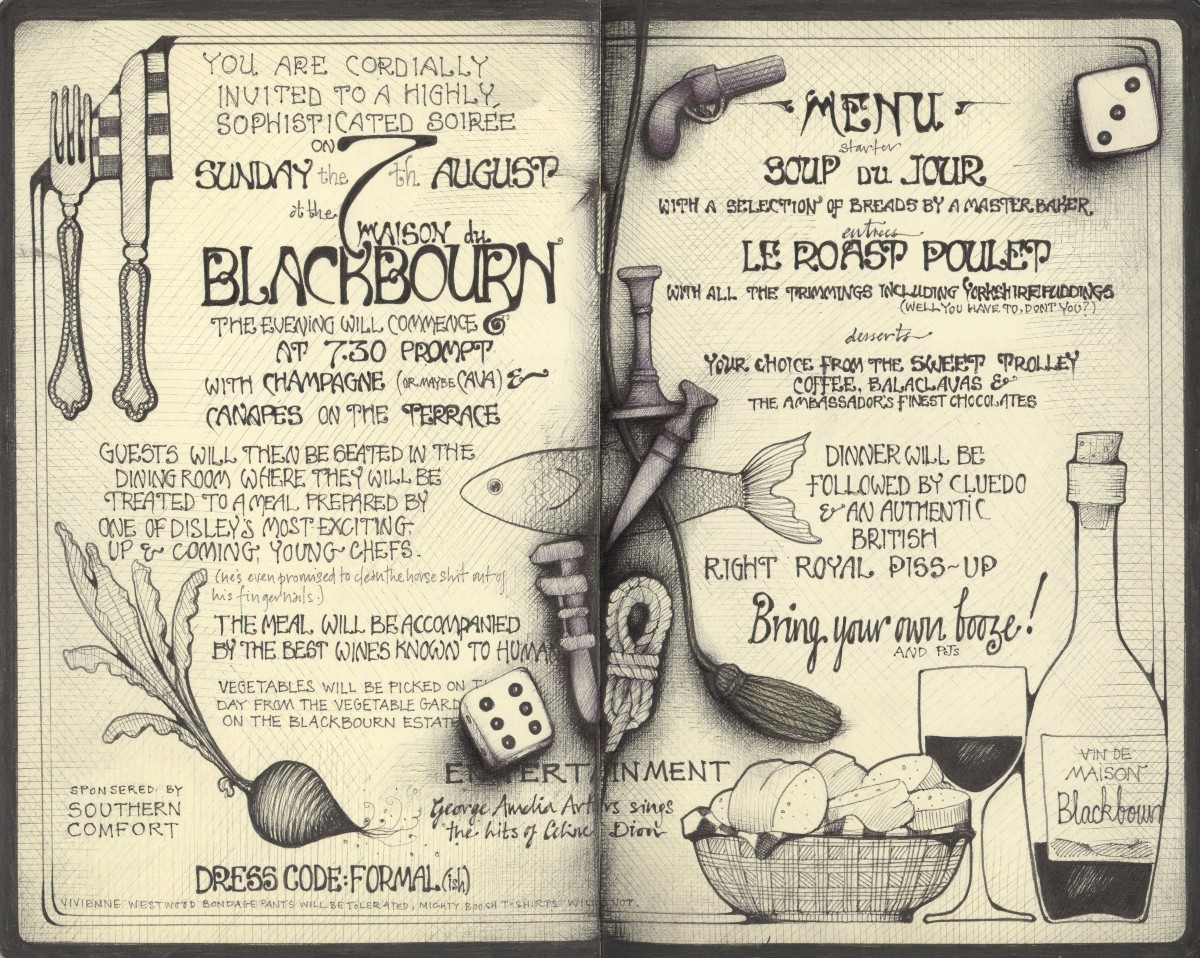 YOU ARE CORDIALLY
INVITED TO A HIGHLY,
SOPHISTICATED SOIREE
ON
SUNDAY the 7th AUGUST
at the
MAISON du
BLACKBOURN
THE EVENING WILL COMMENCE @
AT 7.30 PROMPT
WITH CHAMPAGNE (OR MAYBE CAVA) &
CANAPES ON THE TERRACE
GUESTS WILL THEN BE SEATED IN THE
DINING ROOM WHERE THEY WILL BE
TREATED TO A MEAL PREPARED BY
ONE OF DISLEY'S MOST EXCITING,
UP & COMING, YOUNG CHEFS.
(he's even promised to clean the horse shit out of
his fingernails.)
THE MEAL WILL BE ACCOMPANIED
BY THE BEST WINES KNOWN TO HUMA
VEGETABLES WILL BE PICKED ON T
DAY FROM THE VEGETABLE GARD
ON THE BLACKBOURN ESTATE
SPONSERED BY
SOUTHERN
COMFORT
ENTERTAINMENT
George Amelia Arters sings
the hits of Celine Dion
DRESS CODE: FORMAL (ish)
VIVIENNE WESTWOOD BONDAGE PANTS WILL BE TOLERATED, MIGHTY BOOSH T-SHIRTS WILL NOT.
MENU
starter
SOUP DU JOUR
WITH A SELECTION OF BREADS BY A MASTER BAKER,
entrees
LE ROAST POULET
WITH ALL THE TRIMMINGS INCLUDING YORKSHIRE PUDDINGS
(WELL YOU HAVE TO, DONT YOU?)
desserts
YOUR CHOICE FROM THE SWEET TROLLEY
COFFEE, BALACLAVAS &
THE AMBASSADOR'S FINEST CHOCOLATES
DINNER WILL BE
FOLLOWED BY CLUEDO
& AN AUTHENTIC
BRITISH
RIGHT ROYAL PISS-UP
Bring your own booze!
AND PJ'S
VIN DE
MAISON
Blackbourn